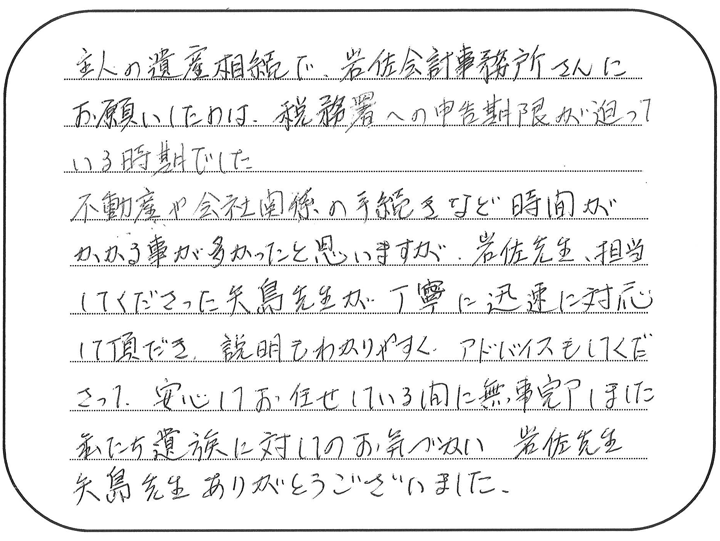 主人の遺産相続で、岩佐会計事務所さんに
お願いしたのは、税務署への申告期限が迫って
いる時期でした
不動産や会社関係の手続きなど時間が
かかる事が多かったと思いますが、岩佐先生、担当
してくださった矢島先生が丁寧に迅速に対応
して頂だき、説明もわかりやすく、アドバイスもしてくだ
さって、安心してお任せしている間に無事完了しました
私たち遺族に対してのお気づかい 岩佐先生
矢島先生ありがとうございました。